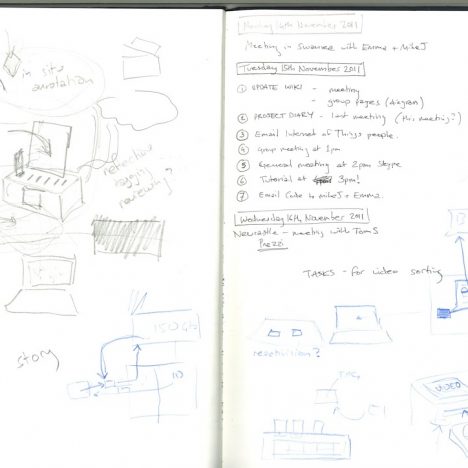 in situ
annotation
retroactive
tagging
reviewing?
150GB
10
story
Monday 14th November 2011
Meeting in Swansea with Emma + Mike J
Tuesday 15th November 2011
① UPDATE WIKI - meeting
- group pages (diagram)
② PROJECT DIARY - last meeting (this meeting?)
③ Email Internet of Things people.
④ Group meeting at 1pm
⑤ General meeting at 2pm Skype
⑥ Tutorial at 3pm!
⑦ Email Code to Mike J + Emma.
Wednesday 16th November 2011
Newcastle - meeting with Tom S
Prezzi
TASKS - for video sorting
reactivision?
VIDEO